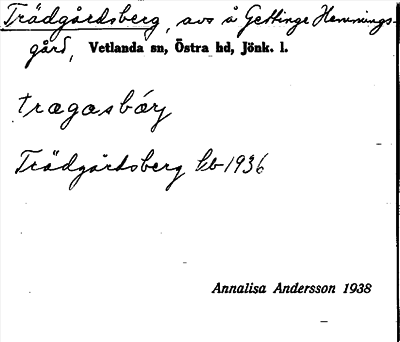 Trädgårdsberg, avs å Gettinge Hemmings-
gård, Vetlanda sn, Östra hd, Jönk. l.
tragasbárj
Trädgårdsberg kb 1936
Annalisa Andersson 1938